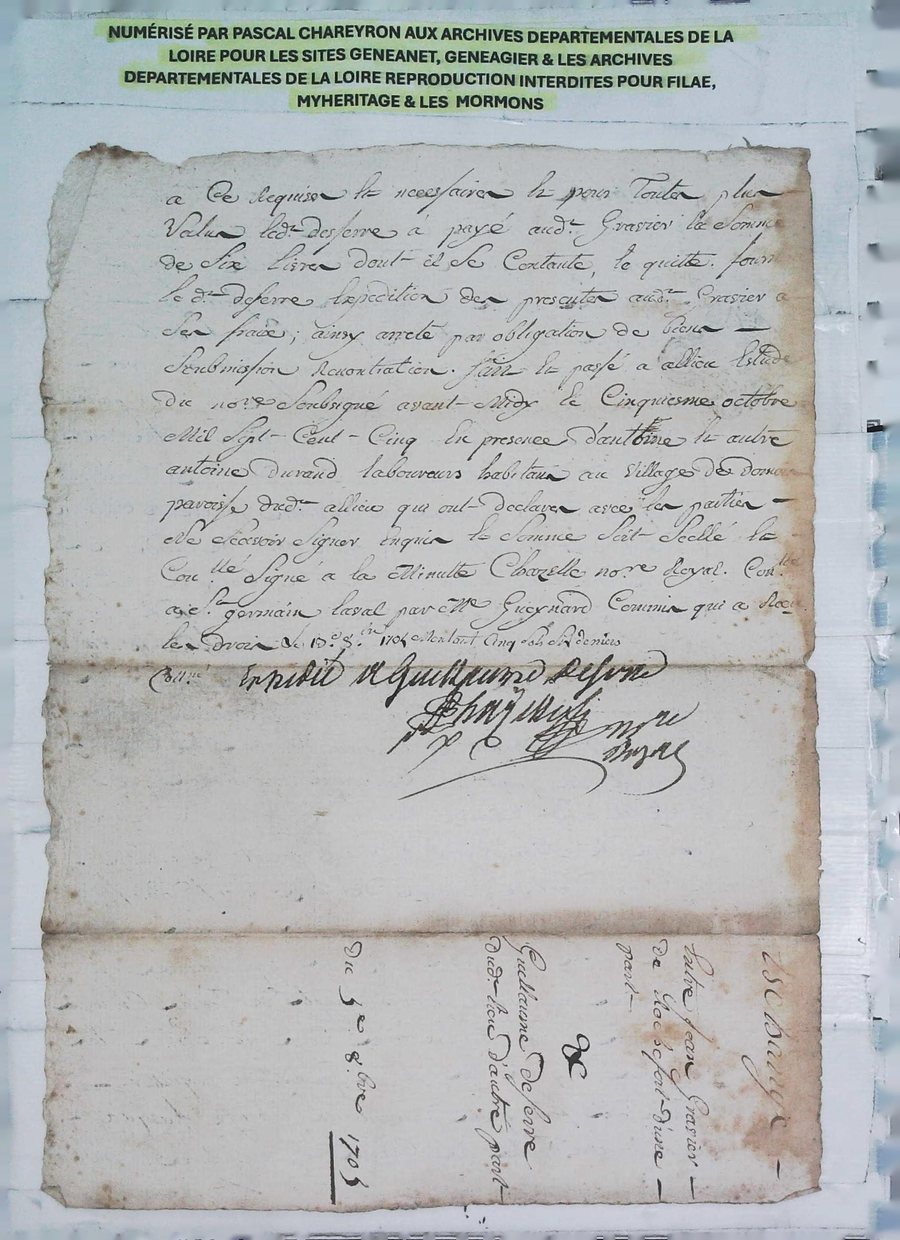 NUMÉRISÉ PAR PASCAL CHAREYRON AUX ARCHIVES DEPARTEMENTALES DE LA
LOIRE POUR LES SITES GENEANET, GENEAGIER & LES ARCHIVES
DEPARTEMENTALES DE LA LOIRE REPRODUCTION INTERDITES POUR FILAE,
MYHERITAGE & LES MORMONS
a Ce Requises Et necessaires Et pour Toutes plus
Value led.t defferre à payé aud.t Grasier la Somme
de Six livres dont il Se Contante, le quitte. fourn
le d.t deferre Expedition des presentes aud.t Grasier a
Ses fraix; ainsy arreté par obligation de biens —
Soubmission Renontiation. fait Et passé a allieu Estude
du no.re Soubsigné avant Midy le Cinquiesme octobre
Mil Sept Cent Cinq En presence d'anthoine Et autre
antoine durand laboureurs habitans au Village de
paroisse dud.t allieu qui ont declaré avec les parties —
Ne Scavoir Signer Enquis Et Somme Soit Scellé Et
Con.llé Signé à la Minutte Chazelle no.re Royal. Con.llé
a S.t germain laval par M.e Gueynard Commis qui a Receu
les droits le 1705 Cinq sols Six deniers
Expedié Guillaume deferre
no.re
Royal
Eschange —
Entre Jean Grasier —
de d'une —
part
&
Guillaume deferre
dud.t lieu d'autre part
du 5.e 8.bre 1705